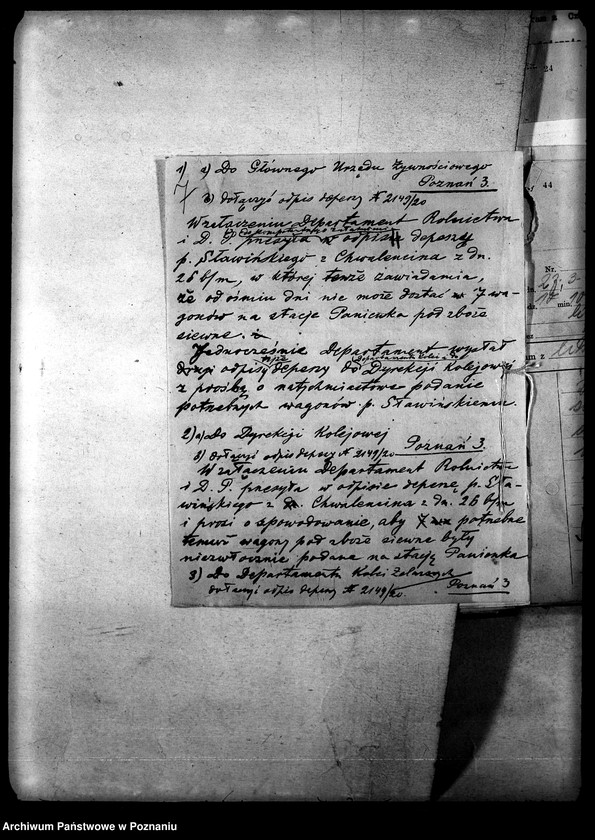 1) a) Do Głównego Urzędu Żywnościowego
Poznań 3.
7
b) dołączyć odpis depeszy № 2149/20
W załączeniu Departament Rolnictwa
i D. P. przesyła w odpis depeszę
p. Sławińskiego z Chwalencina z dn.
26 b/m, w której tenże zawiadamia,
że od ośmiu dni nie może dostać 7 wa-
gonów na stację Panienka pod zboże
siewne.
Jednocześnie Departament wysłał
drugi odpis depeszy do Dyrekcji Kolejowej
z prośbą o natychmiastowe podanie
potrzebnych wagonów p. Sławińskiemu.
2) a) Do Dyrekcji Kolejowej
Poznań 3.
b) dołączyć odpis depeszy № 2149/20
W załączeniu Departament Rolnictwa
i D. P. przesyła w odpisie depeszę p. Sła-
wińskiego z Chwalencina z dn. 26 b/m
i prosi o spowodowanie, aby 7 potrzebne
temuż wagony pod zboże siewne były
niezwłocznie podane na stację Panienka
3) Do Departamentu Kolei Żelaznych
Poznań 3
dołączyć odpis depeszy № 2149/20.
24
44
Nr.
min.
Archiwum Państwowe w Poznaniu